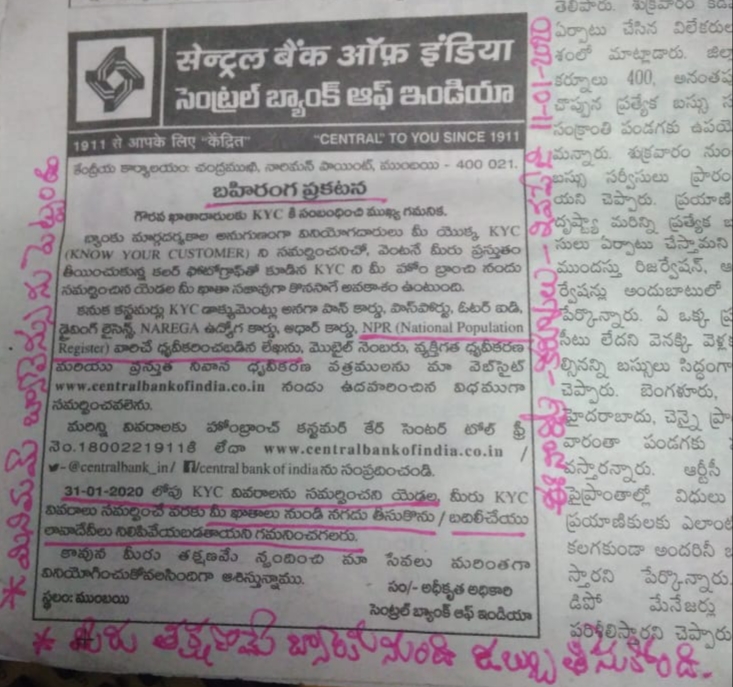 सेन्ट्रल बैंक ऑफ़ इंडिया
సెంట్రల్ బ్యాంక్ ఆఫ్ ఇండియా
1911 से आपके लिए "केंद्रित" "CENTRAL" TO YOU SINCE 1911
కేంద్రీయ కార్యాలయం: చంద్రముఖి, నారిమన్ పాయింట్, ముంబయి - 400 021.
బహిరంగ ప్రకటన
గౌరవ ఖాతాదారులకు KYC కి సంబంధించి ముఖ్య గమనిక.
బ్యాంకు మార్గదర్శకాల అనుగుణంగా వినియోగదారులు మీ యొక్క KYC
(KNOW YOUR CUSTOMER) ని సమర్పించనిచో, వెంటనే మీరు ప్రస్తుతం
తీయించుకున్న కలర్ ఫోటోగ్రాఫ్‌తో కూడిన KYC ని మీ హోం బ్రాంచి నందు
సమర్పించిన యెడల మీ ఖాతా సజావుగా కొనసాగే అవకాశం ఉంటుంది.
కనుక కస్టమర్లు KYC డాక్యుమెంట్లు అనగా పాన్ కార్డు, పాస్‌పోర్టు, ఓటర్ ఐడి,
డ్రైవింగ్ లైసెన్స్, NAREGA ఉద్యోగ కార్డు, ఆధార్ కార్డు, NPR (National Population
Register) వారిచే ధృవీకరించబడిన లేఖను, మొబైల్ నెంబరు, వ్యక్తిగత ధృవీకరణ
మరియు ప్రస్తుత నివాస ధృవీకరణ పత్రములను మా వెబ్‌సైట్
www.centralbankofindia.co.in నందు ఉదహరించిన విధముగా
సమర్పించవలెను.
మరిన్ని వివరాలకు హోంబ్రాంచ్ కస్టమర్ కేర్ సెంటర్ టోల్ ఫ్రీ
నెం.1800221911కి లేదా www.centralbankofindia.co.in /
- @centralbank_in/ /central bank of indiaను సంప్రదించండి.
31-01-2020 లోపు KYC వివరాలను సమర్పించని యెడల, మీరు KYC
వివరాలు సమర్పించే వరకు మీ ఖాతాలు నుండి నగదు తీసుకొను / బదిలీచేయు
లావాదేవీలు నిలిపివేయబడతాయని గమనించగలరు.
కావున మీరు తక్షణమే స్పందించి మా సేవలు మరింతగా
వినియోగించుకోవలసిందిగా ఆశిస్తున్నాము. సం/- అధీకృత అధికారి
స్థలం: ముంబయి సెంట్రల్ బ్యాంక్ ఆఫ్ ఇండియా
* మీరు తక్షణమే బ్యాంకు నుండి డబ్బు తీసుకోండి.
11-01-2020
తెలిపారు. శుక్రవారం
ఏర్పాటు చేసిన విలేకరుల
శంలో మాట్లాడారు.
కర్నూలు 400,
చొప్పున ప్రత్యేక బస్సు
సంక్రాంతి పండగకు
మన్నారు. శుక్రవారం
బస్సు సర్వీసులు
యని చెప్పారు.
దృష్ట్యా మరిన్ని ప్రత్యేక
సులు ఏర్పాటు చేస్తామని
ముందస్తు రిజర్వేషన్,
ర్వేషన్లు అందుబాటులో
పేర్కొన్నారు. ఏ ఒక్క
సీటు లేదని వెనక్కి
ల్సినన్ని బస్సులు సిద్ధంగా
చెప్పారు. బెంగళూరు,
హైదరాబాదు, చెన్నై
వారంతా పండగకు
వస్తారన్నారు. ఆర్టీసీ
పైప్రాంతాల్లో విధులు
ప్రయాణికులకు ఎలాంటి
కలగకుండా అందరినీ
స్తారని పేర్కొన్నారు.
డిపో మేనేజర్లు
పరిశీలిస్తారని చెప్పారు